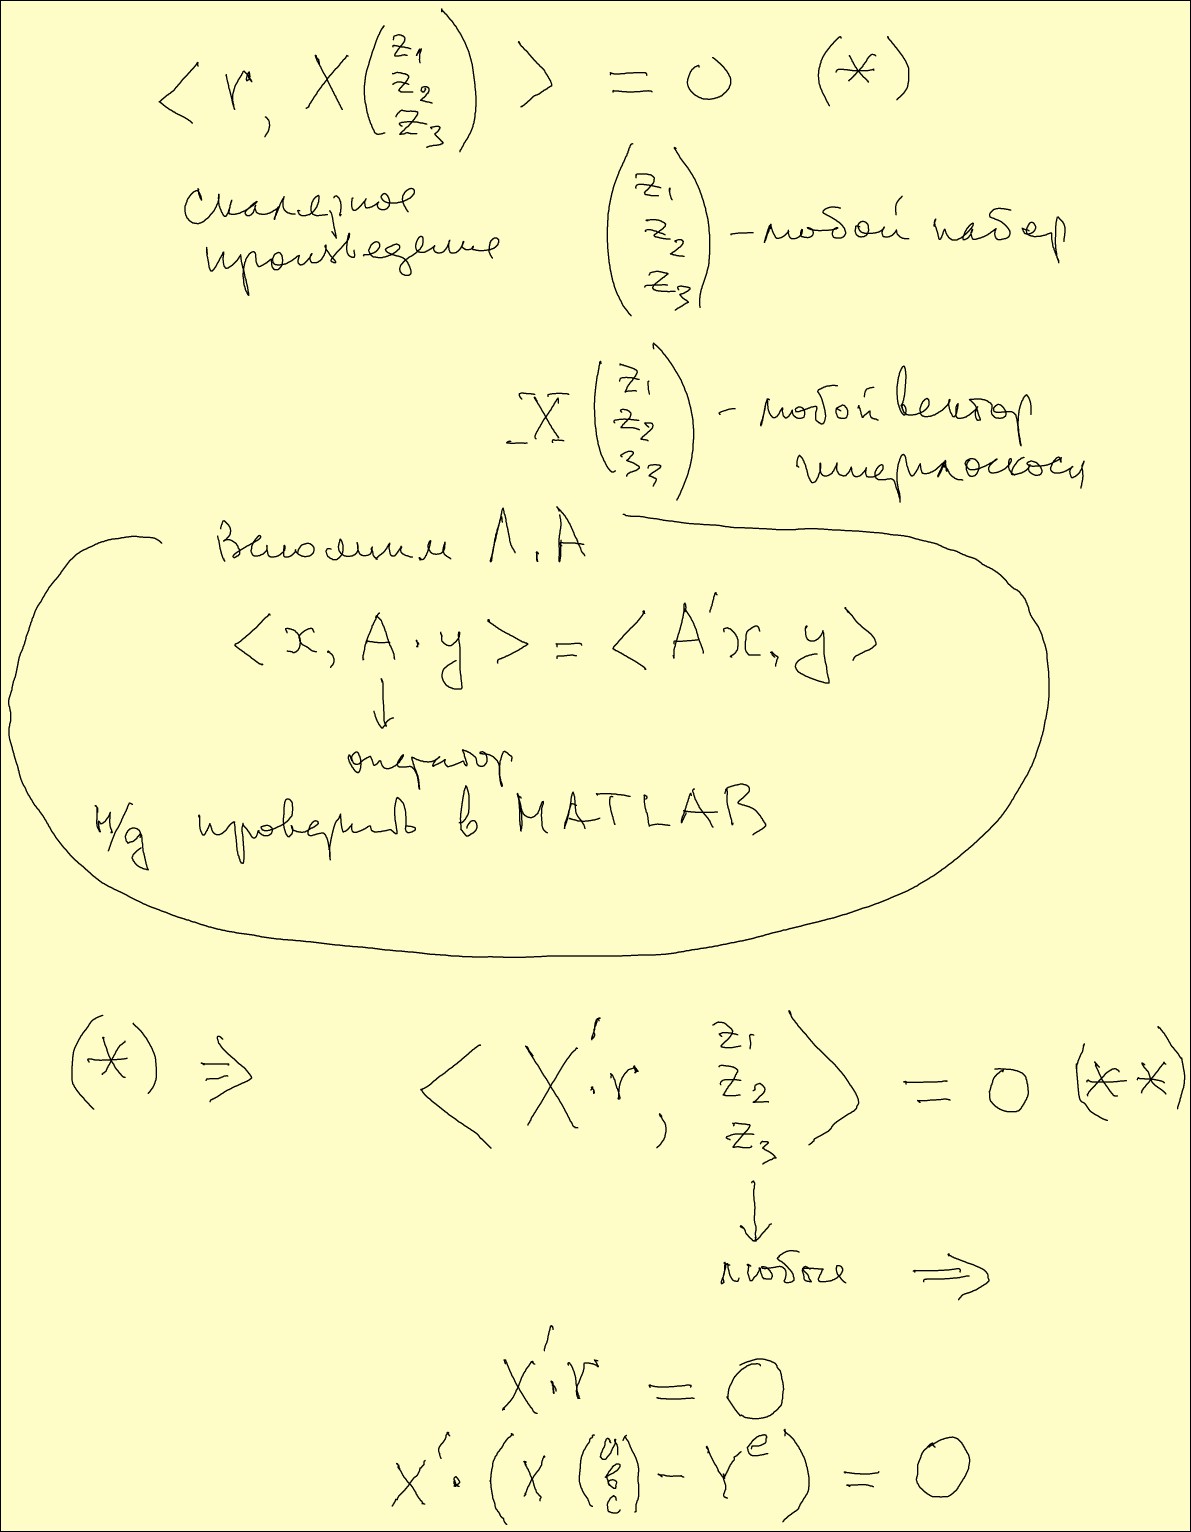 < r, X (z₁ z₂ z₃) > = 0 (*)
Скалярное
произведение
(z₁ z₂ z₃) – любой набор
X (z₁ z₂ з₃) – любой вектор
гиперплоскости
Вспомним Л.А
< x, A · y > = < A'x, y >
↓
оператор
Н/д проверить в MATLAB
(*) ⇒ < X' · r, z₁ z₂ z₃ > = 0 (**)
↓
любое ⇒
X' · r = 0
X' · (X (a в c) – Yᵉ) = 0